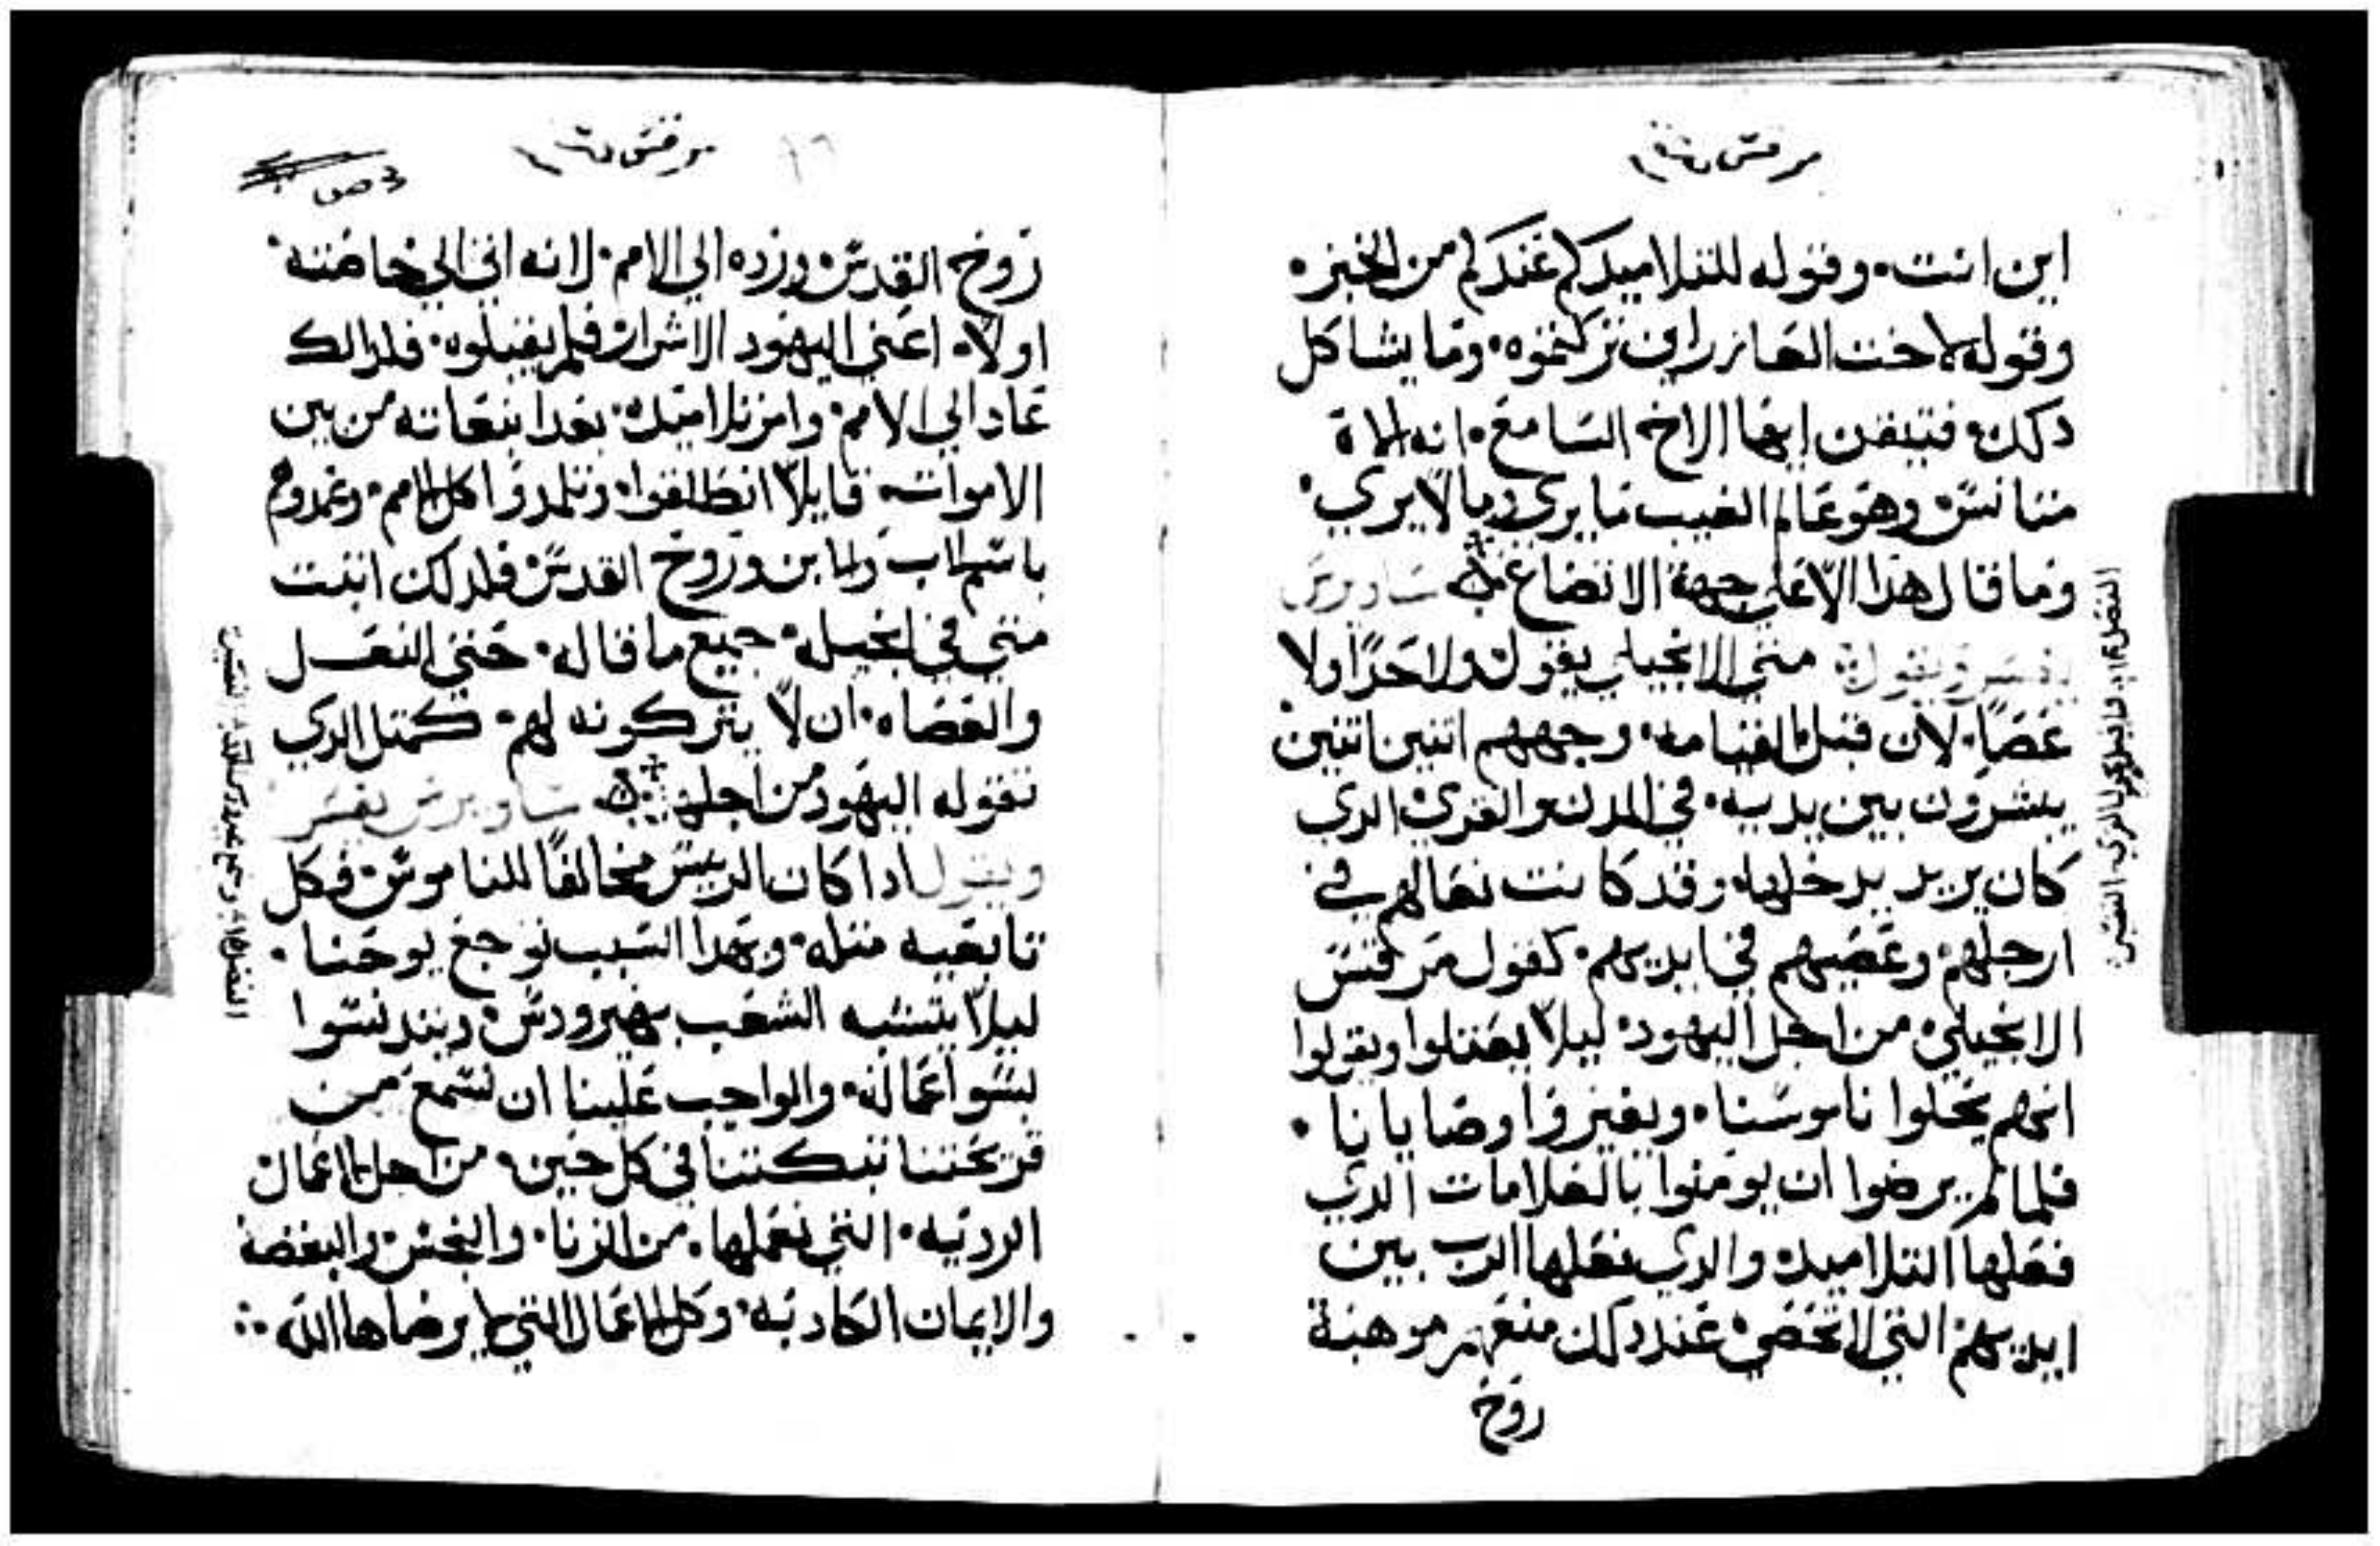 مرقس
اين انت. وقوله للتلاميد كم عندكم من الخبز.
وقوله لاخت العازر اين تركتموه. وما يشاكل
دلك. فتيقن ايها الاخ السامع. انه لماة
متانس وهو عالم الغيب ما يري وما لا يري.
وما قال هدا الا علي جهة الاتضاع. ساويرس
يفسر ويقول. متي الانجيلي يقول ولا حدا ولا
عصا. لان قبل القيامه. وجههم اتنين اتنين
يبشرون بين يديه. في المدن والقري الدي
كان يريد يدخلها. وقد كانت نعالهم في
ارجلهم. وعصيهم في ايديهم. كقول مرقس
الانجيلي. من اجل اليهود. ليلا يعتلوا ويقولوا
انهم يحلوا ناموسنا. ويغيروا وصايانا.
فلما لم يرضوا ان يومنوا بالعلامات الدي
فعلها التلاميد. والدي فعلها الرب بين
ايديهم التي لا تحصي. عند دلك منعهم موهبة
روح
مرقس
روح القدس. ورده الي الامم. لانه اتي الي خاصته
اولا. اعني اليهود الاشرار فلم يقبلوه. فلدالك
عاد الي الامم. وامر تلاميده. بعد انبعاته من بين
الاموات. قايلا انطلقوا. وتلمدوا كل الامم. وعمدوهم
باسم الاب والابن وروح القدس فلدلك اتبت
متي في انجيله. جميع ما قاله. حتي النعل
والعصاه. ان لا يتركونه لهم. كمتل الدي
تقوله اليهود من اجله. ساويرس يفسر
ويقول ادا كان الرييس مخالفا للناموس. فكل
تابعيه متله. وبهدا السبب توجع يوحنا.
ليلا يتشبه الشعب بهيرودس. ويتدنسوا
بسوا عماله. والواجب علينا ان نسمع من
قريحتنا تبكتنا في كل حين. من اجل الاعمال
الرديه. التي نعملها. من الزنا. والنجس. والبغضة
والايمان الكادبه. وكل الاعمال التي لا يرضاها الله